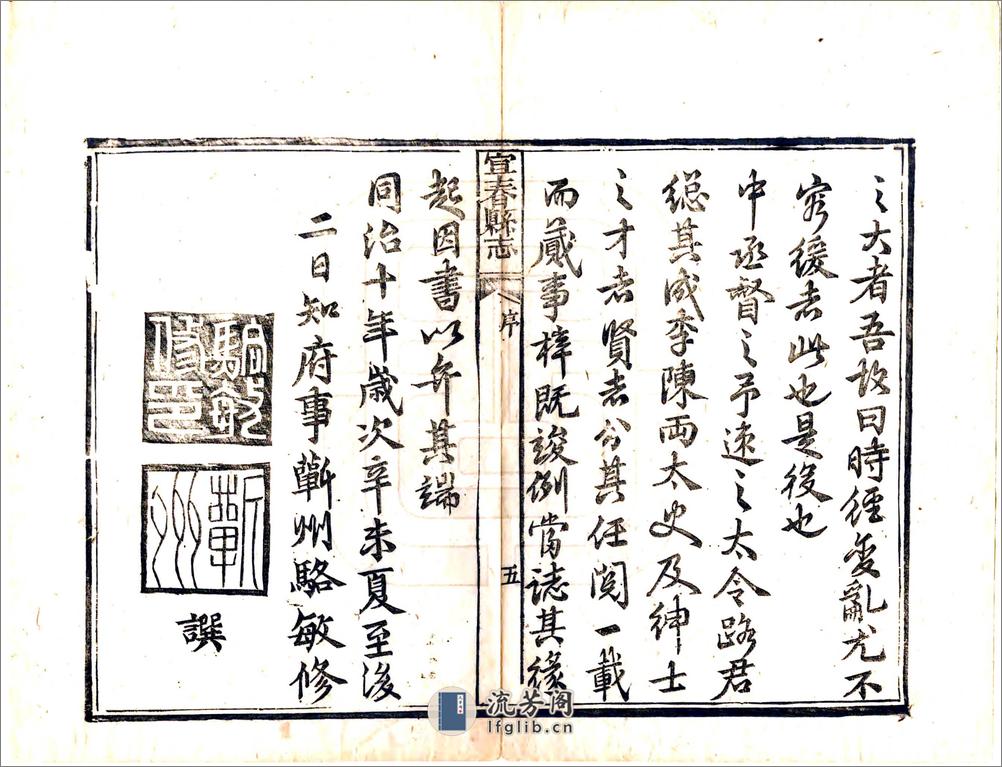 之大者吾故曰時徑變亂尤不
容緩者此也是役也
中丞督之予速之太令路君
總其成李陳兩太史及紳士
之才者賢者分其任閱一載
而蕆事梓既竣例當誌其緣
宜春縣志
序
五
起因書以弁其端
同治十年歲次辛未夏至後
二日知府事蘄州駱敏修
駱敏修印
蘄州
譔
流芳阁
lfglib.cn